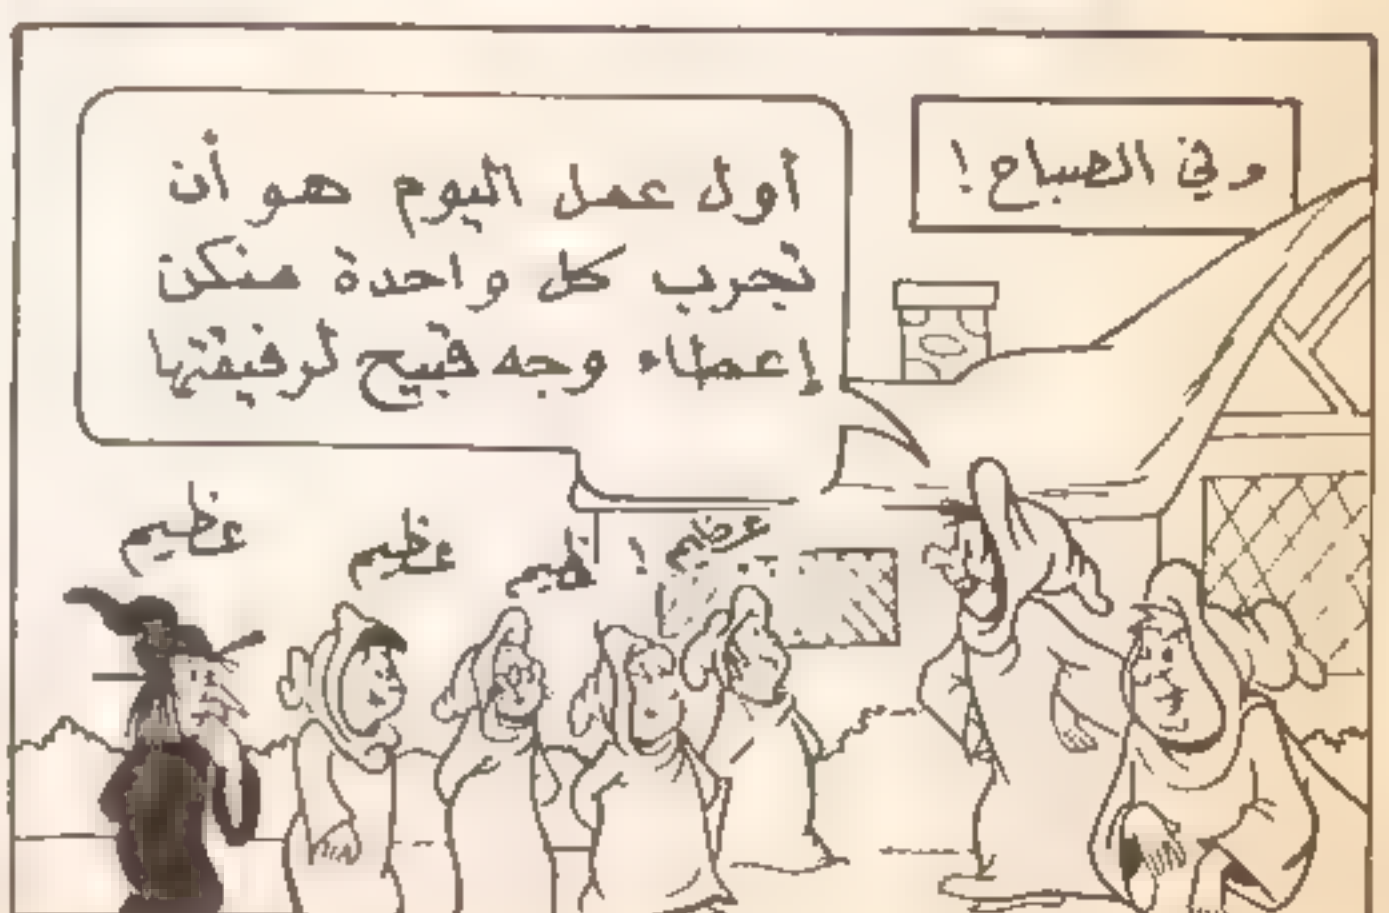 وفي الصباح!
أول عمل اليوم هو أن
تجرب كل واحدة منكن
إعطاء وجه قبيح لرفيقتها
عظيم !
عظيم
عظيم